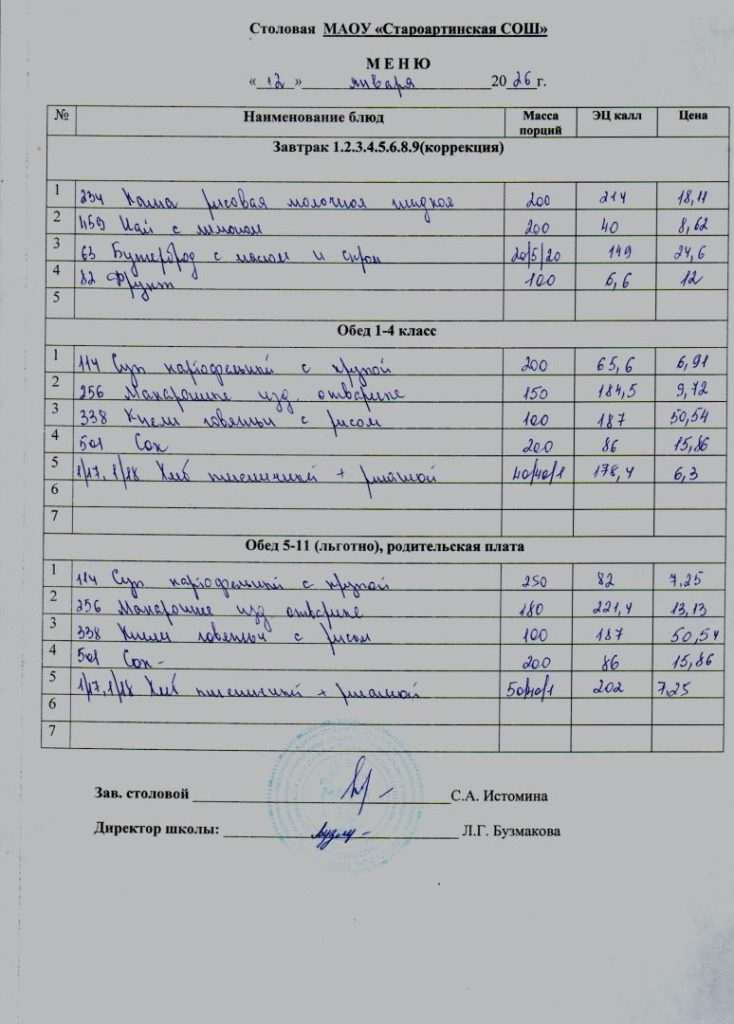 Столовая МАОУ «Староартинская СОШ»
М Е Н Ю
« 12 » января 2026 г.
№ Наименование блюд Масса порций ЭЦ калл Цена
Завтрак 1.2.3.4.5.6.8.9(коррекция)
1 234 Каша рисовая молочная жидкая 200 214 18,11
2 459 Чай с лимоном 200 40 8,62
3 63 Бутерброд с маслом и сыром 20/5/20 149 24,6
4 82 Фрукт 100 6,6 12
5
Обед 1-4 класс
1 114 Суп картофельный с крупой 200 65,6 6,91
2 256 Макароные изд. отварные 150 184,5 9,72
3 338 говяжьи с рисом 100 187 50,54
4 501 Сок 200 86 15,86
5 1/17, 1/18 Хлеб пшеничный + ржаной 40/40/1 178,4 6,3
6
7
Обед 5-11 (льготно), родительская плата
1 114 Суп картофельный с крупой 250 82 7,25
2 256 Макароные изд отварные 180 221,4 13,13
3 338 говяжьи с рисом 100 187 50,54
4 501 Сок - 200 86 15,86
5 1/17, 1/18 Хлеб пшеничный + ржаной 50/40/1 202 7,25
6
7
Зав. столовой С.А. Истомина
Директор школы: Л.Г. Бузмакова